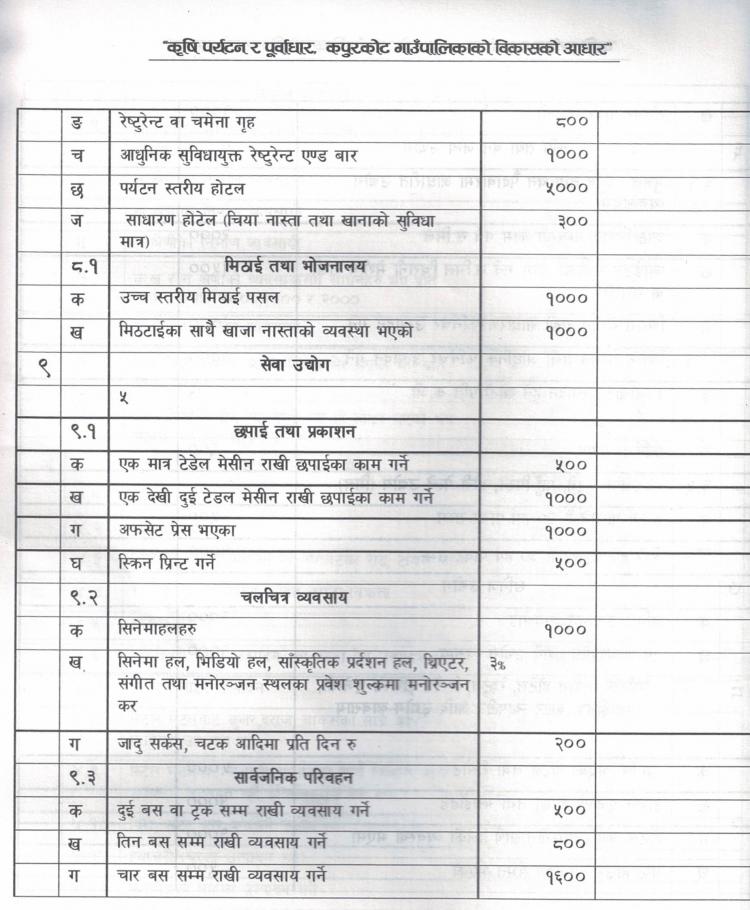 "कृषि पर्यटन र पूर्वाधार, कपुरकोट गाउँपालिकाको विकासको आधार"
ङ रेष्टुरेन्ट वा चमेना गृह ८००
च आधुनिक सुविधायुक्त रेष्टुरेन्ट एण्ड बार १०००
छ पर्यटन स्तरीय होटल ५०००
ज साधारण होटेल (चिया नास्ता तथा खानाको सुविधा ३००
मात्र)
८.१ मिठाई तथा भोजनालय
क उच्च स्तरीय मिठाई पसल १०००
ख मिठटाईका साथै खाजा नास्ताको व्यवस्था भएको १०००
९ सेवा उद्योग
५
९.१ छपाई तथा प्रकाशन
क एक मात्र टेडेल मेसीन राखी छपाईका काम गर्ने ५००
ख एक देखी दुई टेडल मेसीन राखी छपाईका काम गर्ने १०००
ग अफसेट प्रेस भएका १०००
घ स्क्रिन प्रिन्ट गर्ने ५००
९.२ चलचित्र व्यवसाय
क सिनेमाहलहरु १०००
ख. सिनेमा हल, भिडियो हल, साँस्कृतिक प्रर्दशन हल, थ्रिएटर, ३%
संगीत तथा मनोरञ्जन स्थलका प्रवेश शुल्कमा मनोरञ्जन
कर
ग जादु सर्कस, चटक आदिमा प्रति दिन रु २००
९.३ सार्वजनिक परिवहन
क दुई बस वा ट्रक सम्म राखी व्यवसाय गर्ने ५००
ख तिन बस सम्म राखी व्यवसाय गर्ने ८००
ग चार बस सम्म राखी व्यवसाय गर्ने १६००